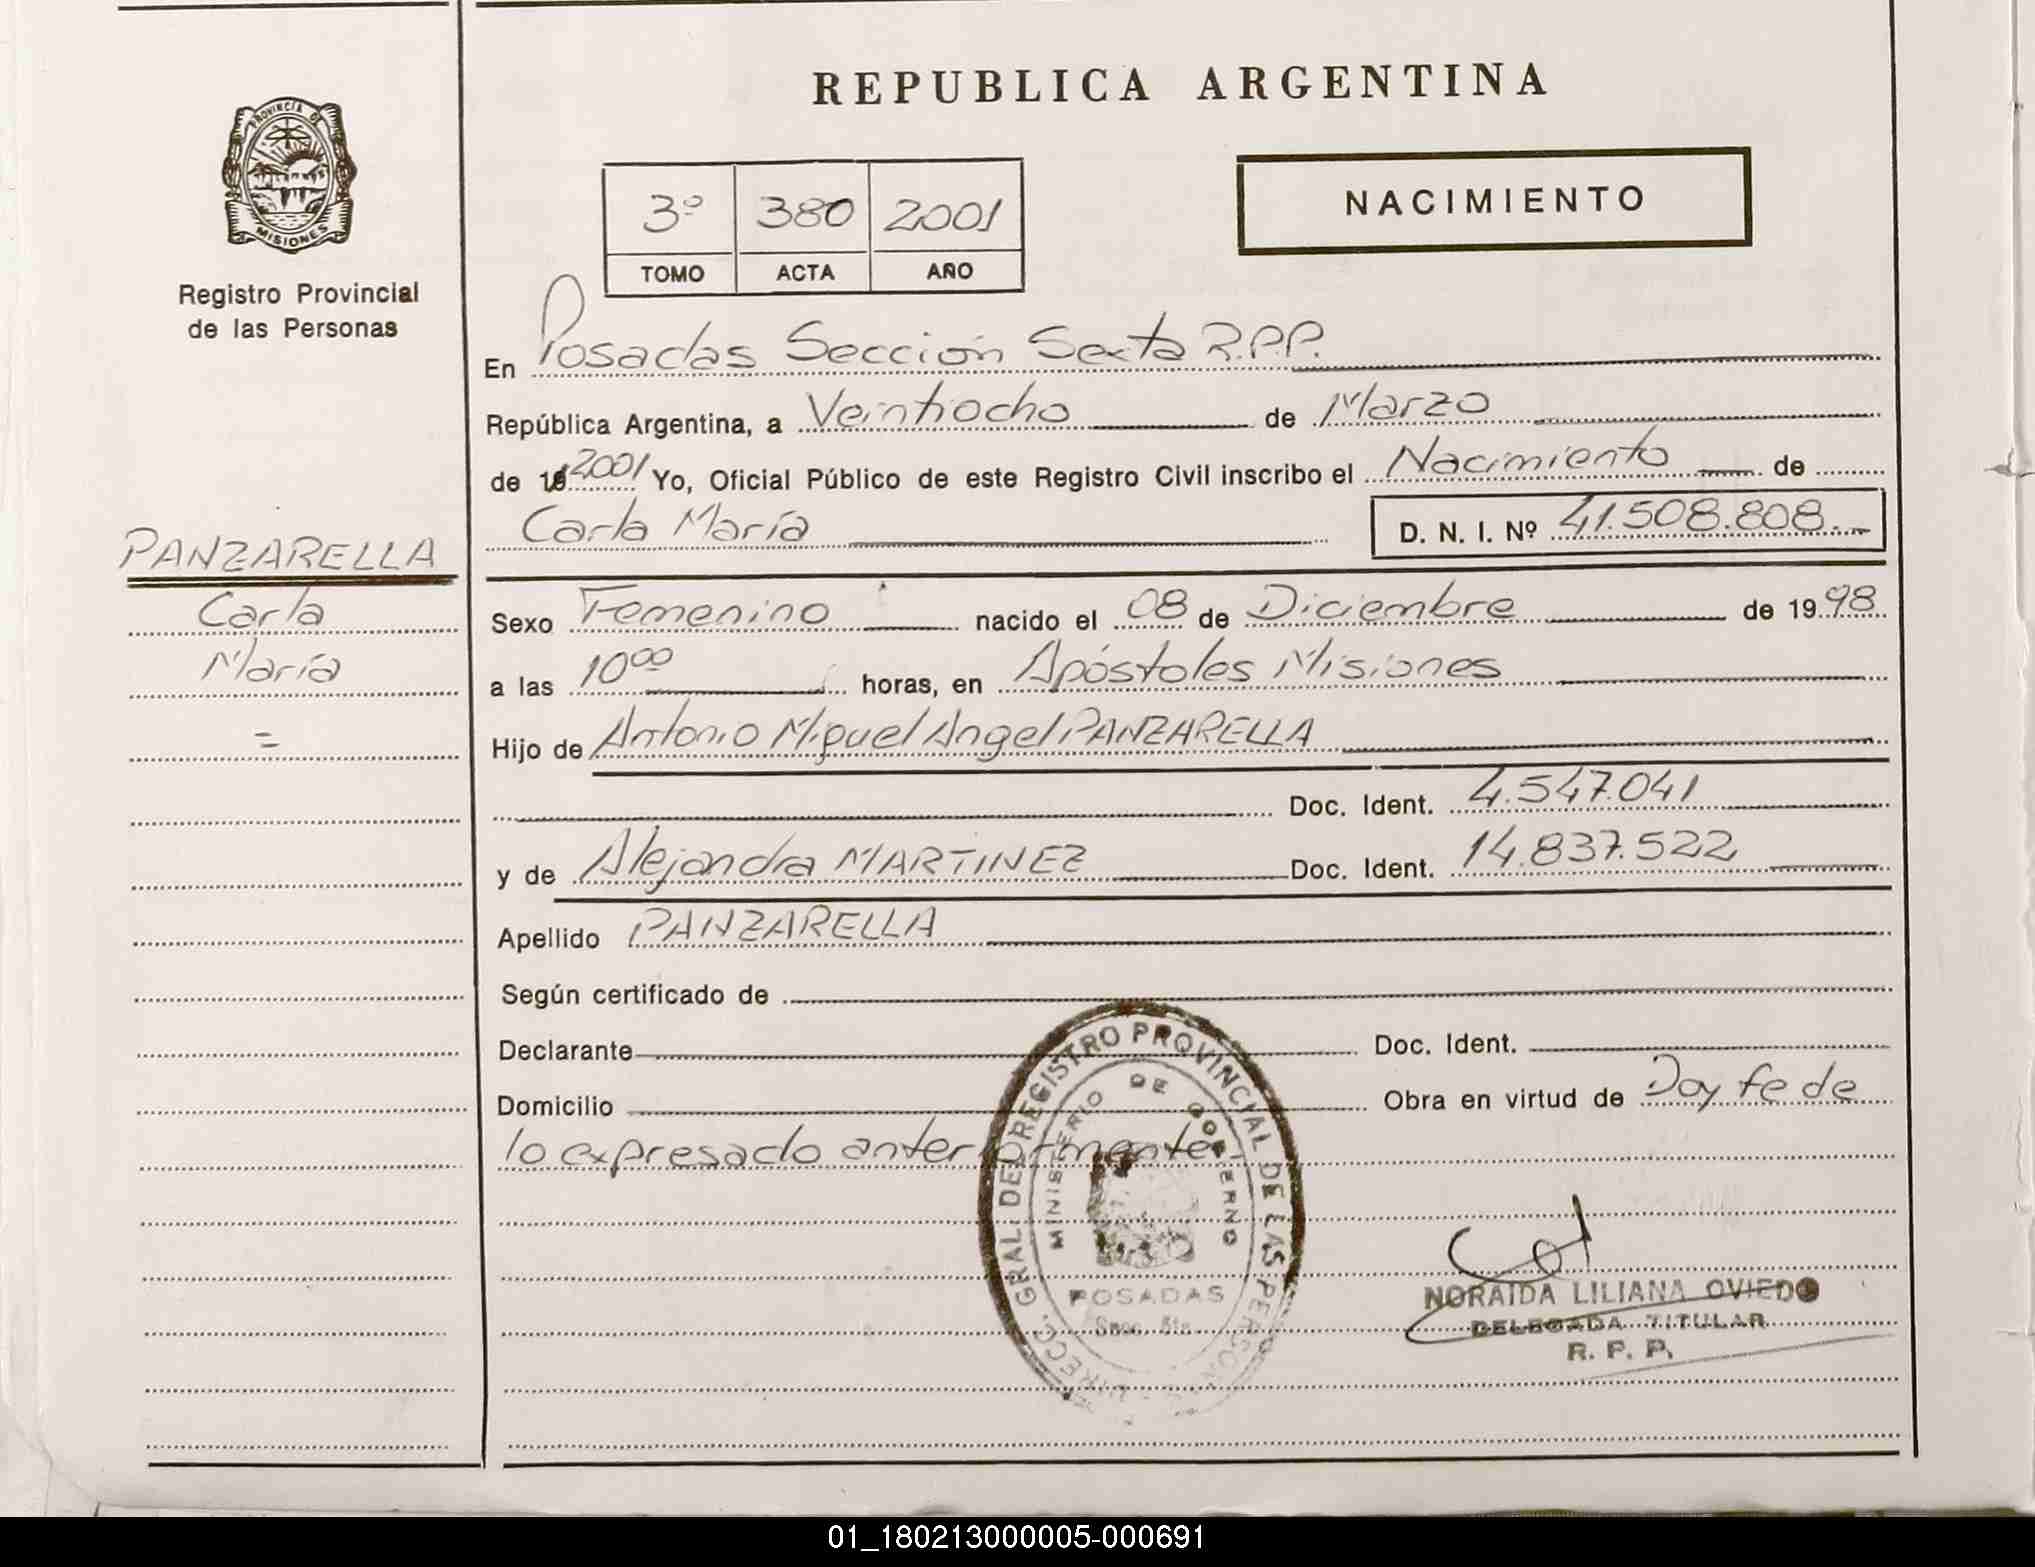 REPUBLICA ARGENTINA
PROVINCIA DE
MISIONES
Registro Provincial
de las Personas
3º 380 2001
TOMO ACTA AÑO
NACIMIENTO
En Posadas Sección Sexta R.P.P.
República Argentina, a Veintiocho de Marzo
de 2001 Yo, Oficial Público de este Registro Civil inscribo el Nacimiento de
Carla María D. N. I. Nº 41.508.808.
PANZARELLA
Carla
María
=
Sexo Femenino nacido el 08 de Diciembre de 1998
a las 10⁰⁰ horas, en Apóstoles Misiones
Hijo de Antonio Miguel Angel PANZARELLA
Doc. Ident. 4.547.041
y de Alejandra MARTINEZ Doc. Ident. 14.837.522
Apellido PANZARELLA
Según certificado de
Declarante Doc. Ident.
Domicilio Obra en virtud de Doy fe de
lo expresado anteriormente
DIRECC. GRAL. DEL REGISTRO PROVINCIAL DE LAS PERSONAS
MINISTERIO DE GOBIERNO
POSADAS
NORAIDA LILIANA OVIEDO
DELEGADA TITULAR
R. P. P.
01_180213000005-000691